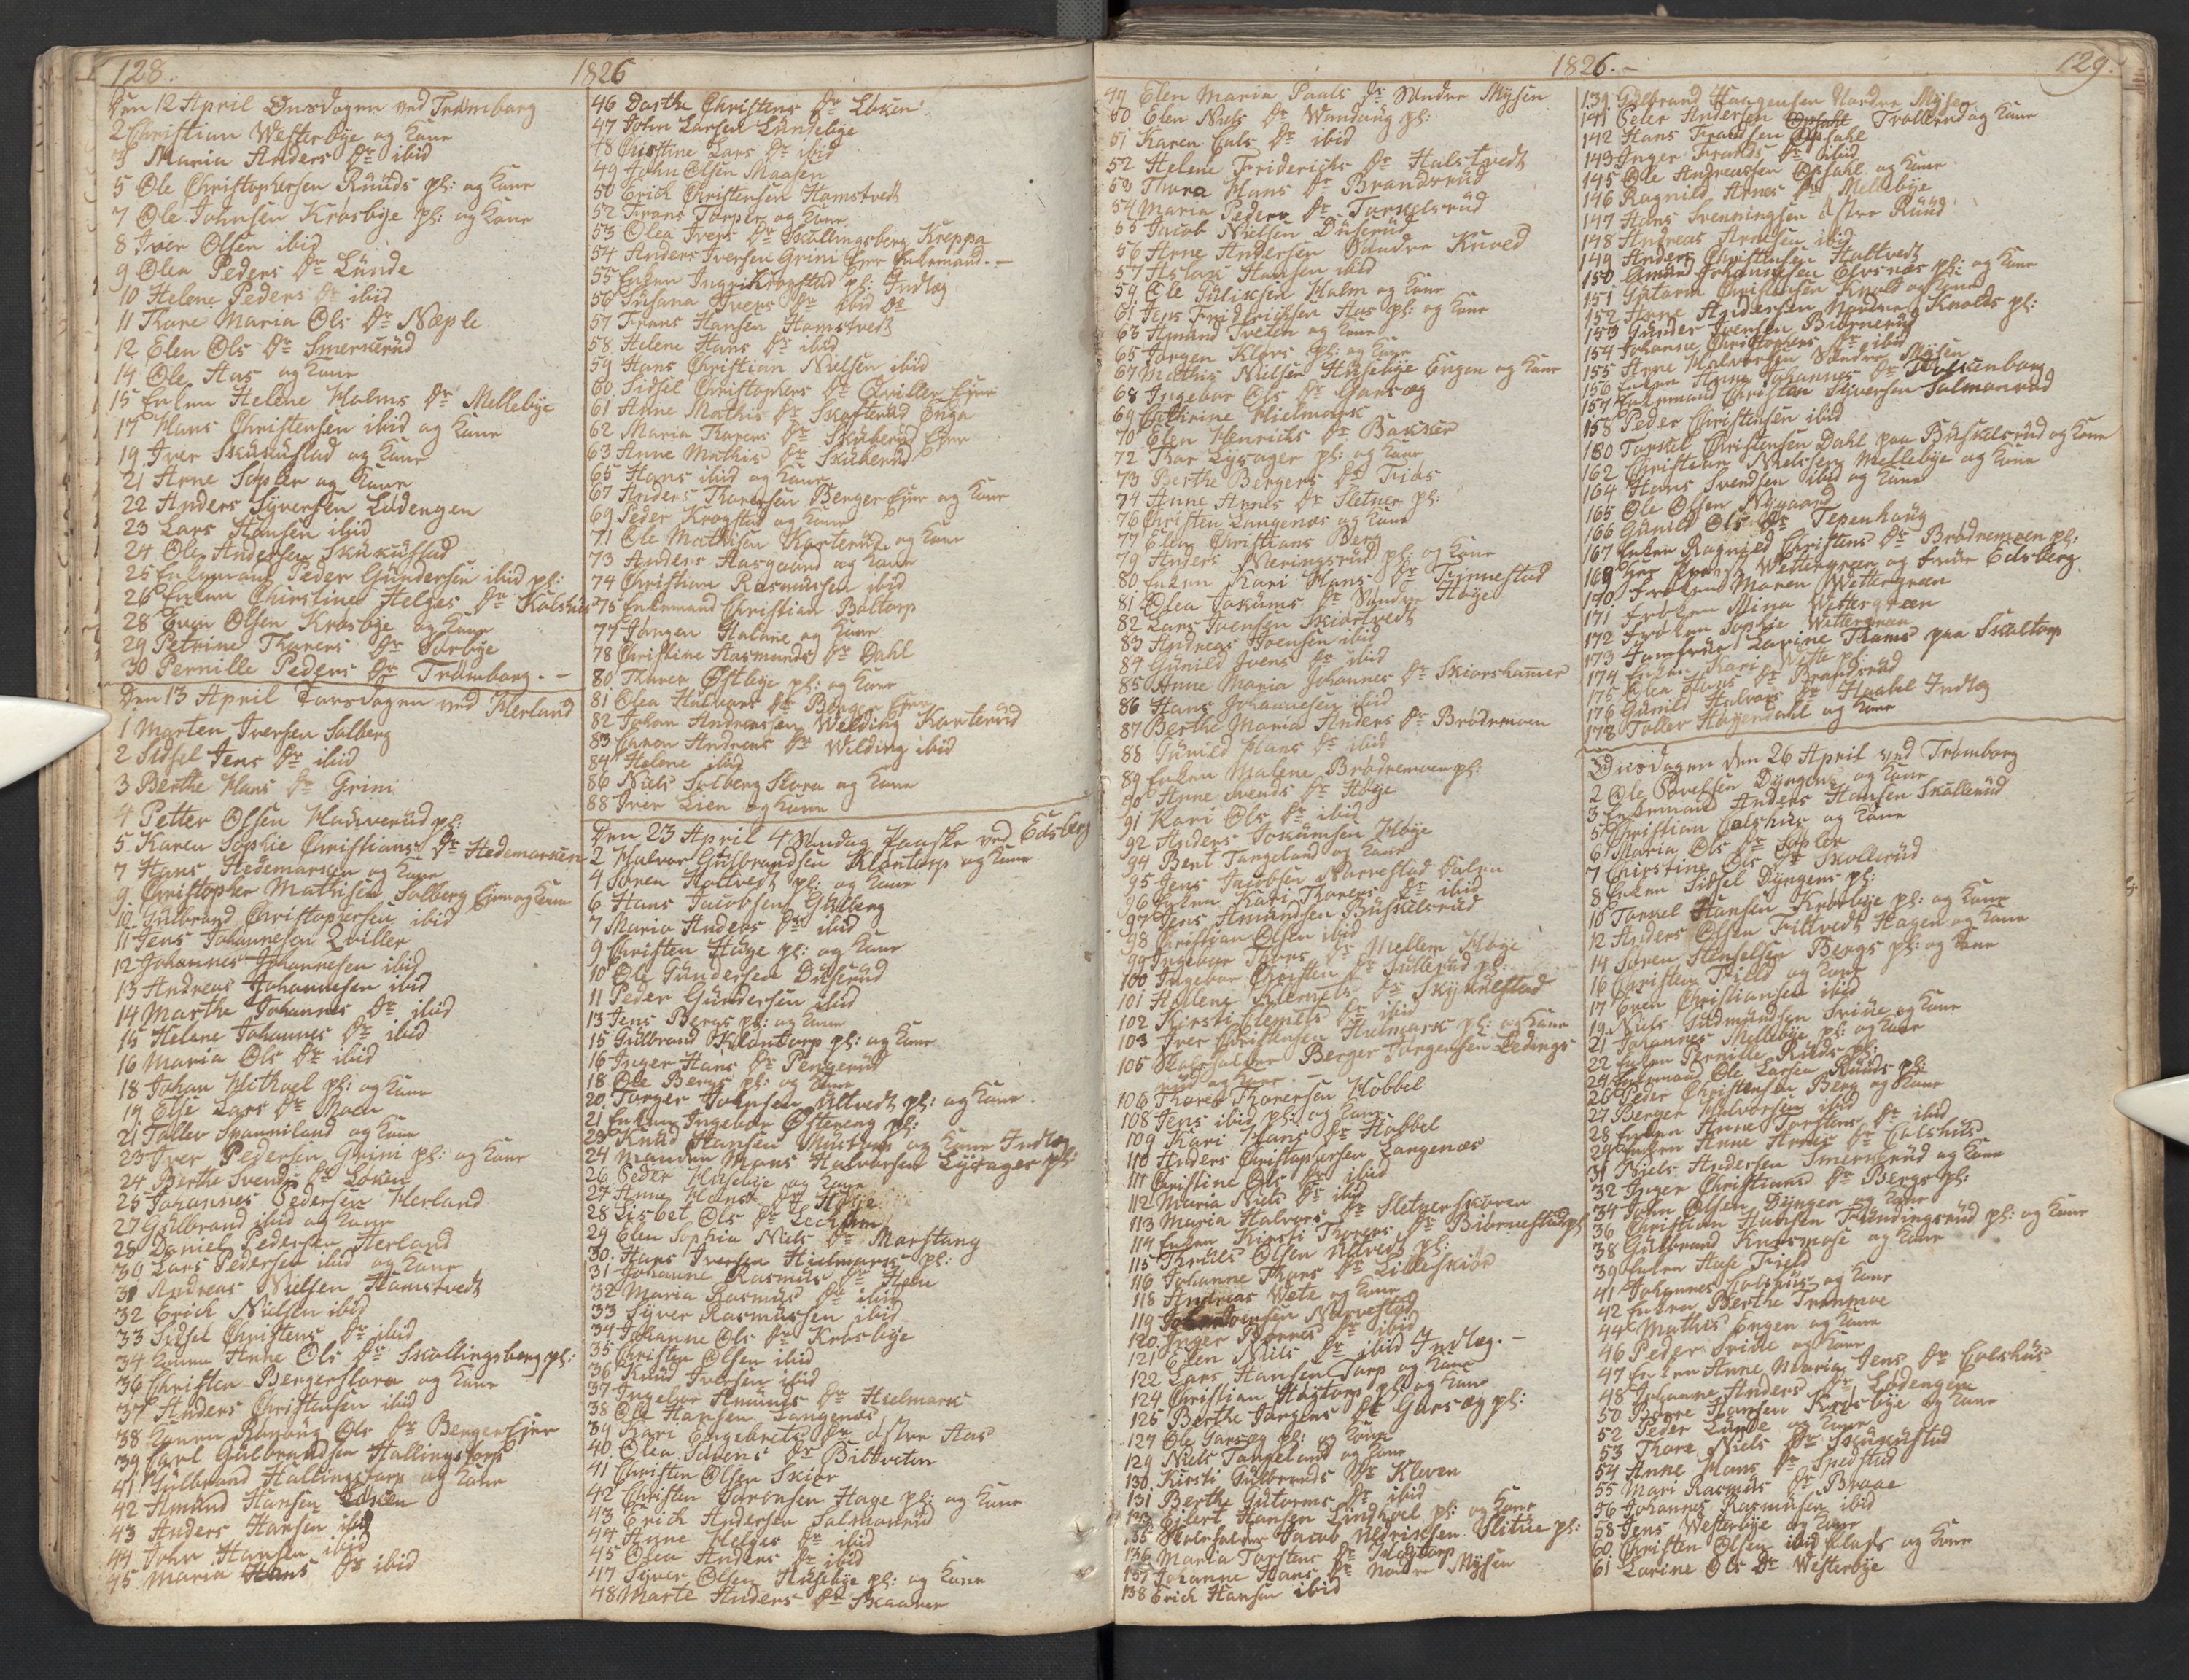 128.
1826
Den 12 April Onsdagen ved Trømborg
2 Christian Westerbye og Kone
3 Maria Anders Dr ibid
5 Ole Christophersen Ruuds pl: og Kone
7 Ole Johnsen Krosbye pl: og Kone
8 Iver Olsen ibid
9 Olea Peders Dr Lunde
10 Helene Peders Dr ibid
11 Thore Maria Ols Dr Næple
12 Elen Ols Dr Smerkerud
14 Ole Aas og Kone
15 Enken Helene Holms Dr Mellebye
17 Hans Christensen ibid og Kone
19 Iver Skukustad og Kone
21 Arne Sopler og Kone
22 Anders Syversen Lødengen
23 Lars Hansen ibid
24 Ole Andersen Skukustad
25 Enkemand Peder Gundersen ibid pl:
26 Enken Christine Helges Dr Kolshus
28 Even Olsen Krosbye og Kone
29 Petrine Thorers Dr Sorbye
30 Pernille Peders Dr Trømborg. -
Den 13 April Torsdagen ved Herland
1 Morten Iversen Solberg
2 Sidsel Jens Dr ibid
3 Berthe Hans Dr Grini
4 Petter Olsen pl:
5 Karen Sophie Christians Dr Hedemarken
7 Hans Hedemarken og Kone
9 Christopher Mathisen Solberg Eier og Kone
10 Gulbrand Christophersen ibid
11 Jens Johannesen Qviller
12 Johannes Johannesen ibid
13 Andreas Johannesen ibid
14 Marthe Johannes Dr ibid
15 Helene Johannes Dr ibid
16 Maria Ols Dr ibid
18 Johan Michael pl: og Kone
19 Else Lars Dr Moen
21 Tollev Spanniland og Kone
23 Iver Pedersen Grini pl: og Kone
24 Berthe Svends Dr Løken
25 Johannes Pedersen Herland
27 Gulbrand ibid og Kone
28 Daniel Pedersen Herland
30 Lars Pedersen ibid og Kone
31 Andreas Nielsen Hamstvedt
32 Erich Nielsen ibid
33 Sidsel Christens Dr ibid
34 Konen Anne Ols Dr Skollingsberg pl:
36 Christen Bergerstora og Kone
37 Anders Christensen ibid
38 Konen Ols Dr Berger Eier
39 Carl Gulbrandsen Hallingstorp
41 Gulbrand Hallingstorp og Kone
42 Amund Hansen Løken
43 Anders Hansen ibid
44 John Hansen ibid
45 Maria Hans Dr ibid
46 Dorthe Christens Dr Løken
47 John Larsen Lundebye
48 Christine Lars Dr ibid
49 John Olsen Maasen
50 Erich Christensen Hamstvedt
52 Frans Torper og Kone
53 Olea Ivers Dr Skollingsberg Kreppa
54 Anders Iversen Grini Eier Enkemand. -
55 Enken Ingri Krogstad pl: Indlæg
56 Susana Ivers Dr ibid
57 Frans Hansen Hamstvedt
58 Helene Hans Dr ibid
59 Hans Christian Nielsen ibid
60 Sidsel Christophers Dr Qviller Eier
61 Anne Mathis Dr Skofterud Enga
62 Maria Thorers Dr Skuberud Eier
63 Anne Mathis Dr Skuberud
65 Hans ibid og Kone
67 Anders Thoresen Berger Eier og Kone
69 Peder Krogstad og Kone
71 Ole Mathisen Korterud og Kone
73 Anders Aasgaard og Kone
74 Christian Rasmussen ibid
75 Enkemand Christian Boltorp
77 Jørgen Halone og Kone
78 Christine Aasmunds Dr Dahl
80 Thorer Østbye pl: og Kone
81 Olea Halvors Dr Berger Eier
82 Johan Andreasen Welding Korterud
83 Andreas Dr Welding ibid
84 Helene ibid
86 Niels Solberg Stora og Kone
88 Iver Lien og Kone
Den 23 April 4 Søndag Paaske ved Edsberg
2 Halvor Gulbrandsen Klontorp og Kone
4 Søren Holtvedt pl: og Kone
6 Hans Jacobsen Gusberg
7 Maria Anders Dr ibid
9 Christen Hage pl: og Kone
10 Ole Gundersen Duserud
11 Peder Gundersen ibid
13 Jens Bergs pl: og Kone
15 Gulbrand Klontorp pl: og Kone
16 Inger Hans Dr Pengerud
18 Ole Bergs pl: og Kone
20 Torger Johnsen Ultvedt pl: og Kone.
21 Enken Ingebor Østereng pl:
23 Knud Hansen og Kone Indlæg
24 Manden Mons Halvorsen Lysager pl:
26 Peder Husebye og Kone
27 Anne Hans Dr Høye
28 Lisbet Ols Dr
29 Elen Sophia Niels Dr Morstang
30 Hans Iversen Hielmark pl:
31 Johanne Rasmus Dr Hem
32 Maria Rasmus Dr ibid
33 Syver Rasmussen ibid
34 Johanne Ols Dr Krosbye
35 Christen Olsen ibid
36 Knud Iversen ibid
37 Ingebor Amunds Dr Hielmark
38 Ole Hansen Langenæs
39 Kari Engebrets Dr østre Aas
40 Olea Sørens Dr Bittveten
41 Christen Olsen Skiør
42 Christen Sørensen Hage pl: og Kone
43 Erich Andersen Solmonrud
44 Anne Helges Dr ibid
45 Olea Anders Dr ibid
47 Syver Olsen Husebye pl: og Kone
48 Marte Anders Dr Skaarer
1826. -
129.
49 Elen Maria Povels Dr Søndre Mysen
50 Elen Niels Dr Wandaug pl:
51 Karen Ols Dr ibid
52 Helene Friderichs Dr Halstvedt
53 Thora Hans Dr Brandsrud
54 Maria Peders Dr Torkelsrud
55 Jacob Nielsen Duserud
56 Arne Andersen Søndre Knold
57 Aslak Hansen ibid
59 Ole Gulixsen Holm og Kone
61 Jens Friderichsen Aas pl: og Kone
63 Amund Tveten og Kone
65 Jørgen Kløvs pl: og Kone
67 Mathis Nielsen Husebye Engen og Kone
68 Ingebor Ols Dr Garsæg
69 Cathrine Hielmark
70 Elen Henrichs Dr Bakker
72 Thor Lysager pl: og Kone
73 Berthe Bergers Dr Trøs
74 Anne Arnes Dr Sletner pl:
76 Christen Langenæs og Kone
77 Elen Christians Berg
79 Anders Næringsrud pl: og Kone
80 Enken Kari Hans Dr Finnestad
81 Olea Joakums Dr Søndre Høye
82 Lars Joensen Skiortvedt
83 Andreas Joensen ibid
84 Gunild Joens Dr ibid
85 Anne Maria Johannes Dr Skiorshammer
86 Hans Johannesen ibid
87 Berthe Maria Anders Dr Brødremoen
88 Gunild Hans Dr ibid
89 Enken Malene Brødremoen pl:
90 Anne Svends Dr Høye
91 Kari Ols Dr ibid
92 Anders Joakumsen Høye
94 Bent Tangeland og Kone
95 Jens Jacobsen Narvestad
96 Enken Kari Thorers Dr ibid
97 Jens Amundsen Buskelsrud
98 Christian Olsen ibid
99 Ingebor Thors Dr Mellem Høye
100 Ingebor Christen Dr Gullerud pl:
101 Hellene Klemets Dr Skykulstad
102 Kirsti Clemets Dr ibid
103 Iver Christensen Hielmark pl: og Kone
105 Skoleholder Berger Jørgensen Ledings-
rud og Kone. -
106 Thorer Thorersen Hobbel
108 Jens ibid pl: og Kone
109 Kari Hans Dr Hobbel
110 Anders Christophersen Langenæs
111 Christine Ols Dr ibid
112 Maria Niels Dr ibid
113 Maria Halvors Dr Sletnerskoven
114 Enken Kirsti Thorers Dr Biørnestad pl:
115 Truls Olsen Ultvedt pl:
116 Johanne Thors Dr Lilleskiør
118 Andreas Wete og Kone
119 Joensen Narvestad
120 Inger Børres Dr ibid
121 Elen Niels Dr ibid Indlæg. -
122 Lars Hansen Torp og Kone
124 Christian Høytorp pl: og Kone
126 Berthe Jørgens Dr Garsæg pl:
127 Ole Garsæg pl: og Kone
129 Niels Tangeland og Kone
130 Kirsti Gulbrands Dr Kleven
131 Berthe Gutorms Dr ibid
133 Eilert Hansen Lundhoel pl: og Kone
135 Skoleholder Jacob Uldrixsen Slitue pl:
136 Maria Torstens Dr Høytorp
137 Johanne Hans Dr Nordre Mysen
138 Erich Hansen ibid
139 Gulbrand Haagensen Nordre Mysen
141 Peter Andersen Trollerud og Kone
142 Hans Frandsen Opsahl
143 Inger Frands Dr ibid
145 Ole Andreassen Opsahl og Kone
146 Ragnild Arnes Dr Mellebye
147 Hans Svenningsen østre Ruud
148 Andreas Arnesen ibid
149 Anders Christensen Holtvedt
150 Amund Johannesen Elvsnæs pl: og Kone
151 Gutorm Christensen Knold og Kone
152 Arne Andersen Nordre Knolds pl:
153 Gunder Joensen Biørnerud
154 Johanne Christophers Dr ibid
155 Arne Halvorsen Søndre Mysen
156 Enken Anne Johannes Dr Folkenborg
157 Enkemand Christen Syversen Solmonrud
158 Peder Christensen ibid
160 Torkel Christensen Dahl paa Buskelsrud og Kone
162 Christian Nielssen Mellebye og Kone
164 Hans Svendsen ibid og Kone
165 Ole Olsen Nygaard
166 Gunild Ols Dr Tepenhaug
167 Enken Ragnild Christens Dr Brødremoen pl:
169 Her Provst Wettergreen og Frue Edsberg.
170 Frøken Maren Wettergreen
171 Frøken Mina Wettergreen
172 Frøken Sophie Wettergreen
173 Jomfrue Lovine Thams paa Skoltorp
174 Enken Kari Wette pl:
175 Olea Hans Dr Brandsrud
176 Gunild Halvors Dr Indlæg
178 Tollev Høgendahl og Kone
Onsdagen den 26 April ved Trømborg
2 Ole Povelsen Dyngen og Kone
3 Enkemand Anders Hansen Skollerud
5 Christian Colshus og Kone
6 Maria Ols Dr Sopler
7 Christine Ols Dr Skollerud
8 Enken Sidsel Dyngens pl:
10 Torkel Hansen Krosbye pl: og Kone
12 Anders Olsen Tiltvedt Hagen og Kone
14 Soren Stenselsen Bergs pl: og Kone
16 Christen Field og Kone
17 Even Christiansen ibid
19 Niels Gudmundsen Sviue og Kone
21 Johannes Mellebye pl: og Kone
22 Enken Pernille Ruuds pl:
24 Enkemand Ole Larsen Ruuds pl:
26 Peder Christensen Berg og Kone
27 Berger Halvorsen ibid
28 Enken Anne Torstens Dr ibid
29 Enken Anne Arnes Dr Colshus
31 Niels Andersen Smerkerud og Kone
32 Inger Christians Dr Bergs pl:
34 John Olsen Dyngen og Kone
36 Christian Hansen Fundingsrud pl: og Kone
38 Gulbrand Knosmose og Kone
39 Enken Aase Field
41 Johannes Colshus og Kone
42 Enken Berthe Trønmoe
44 Mathis Engen og Kone
46 Peder Sviue og Kone
47 Enken Anne Maria Jens Dr Colshus
48 Johanne Anders Dr Lødengen
50 Børre Hansen Krosbye og Kone
52 Peder Lunde og Kone
53 Thore Niels Dr Skukustad
54 Anne Hans Dr Spedstad
55 Mari Rasmus Dr Braae
56 Johannes Rasmusen ibid
58 Jens Westerbye og Kone
60 Christen Olsen ibid plads og Kone
61 Lovine Ols Dr Westerbye